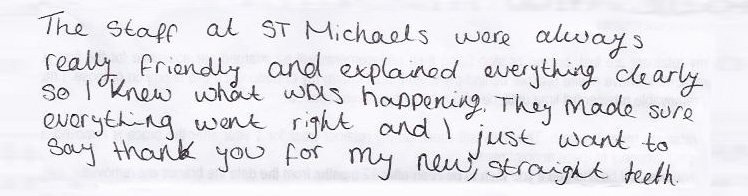 The staff at ST Michaels were always
really friendly and explained everything clearly
so I knew what was happening. They made sure
everything went right and I just want to
say thank you for my new, straight teeth.